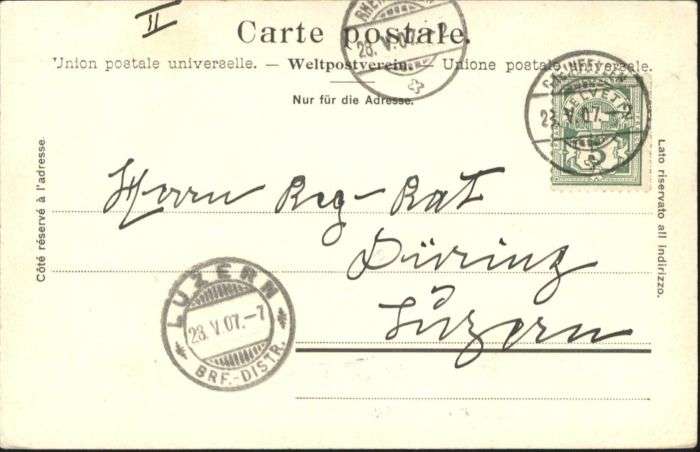 II
Carte postale.
Union postale universelle. — Weltpostverein. — Unione postale universale.
Nur für die Adresse.
Côté réservé à l'adresse.
Lato riservato all indirizzo.
28.V.07.
23.V.07.–2
HELVETIA
5
Herrn Reg-Rat
Düring
Luzern
LUZERN
23.V.07.–7
BRF.-DISTR.